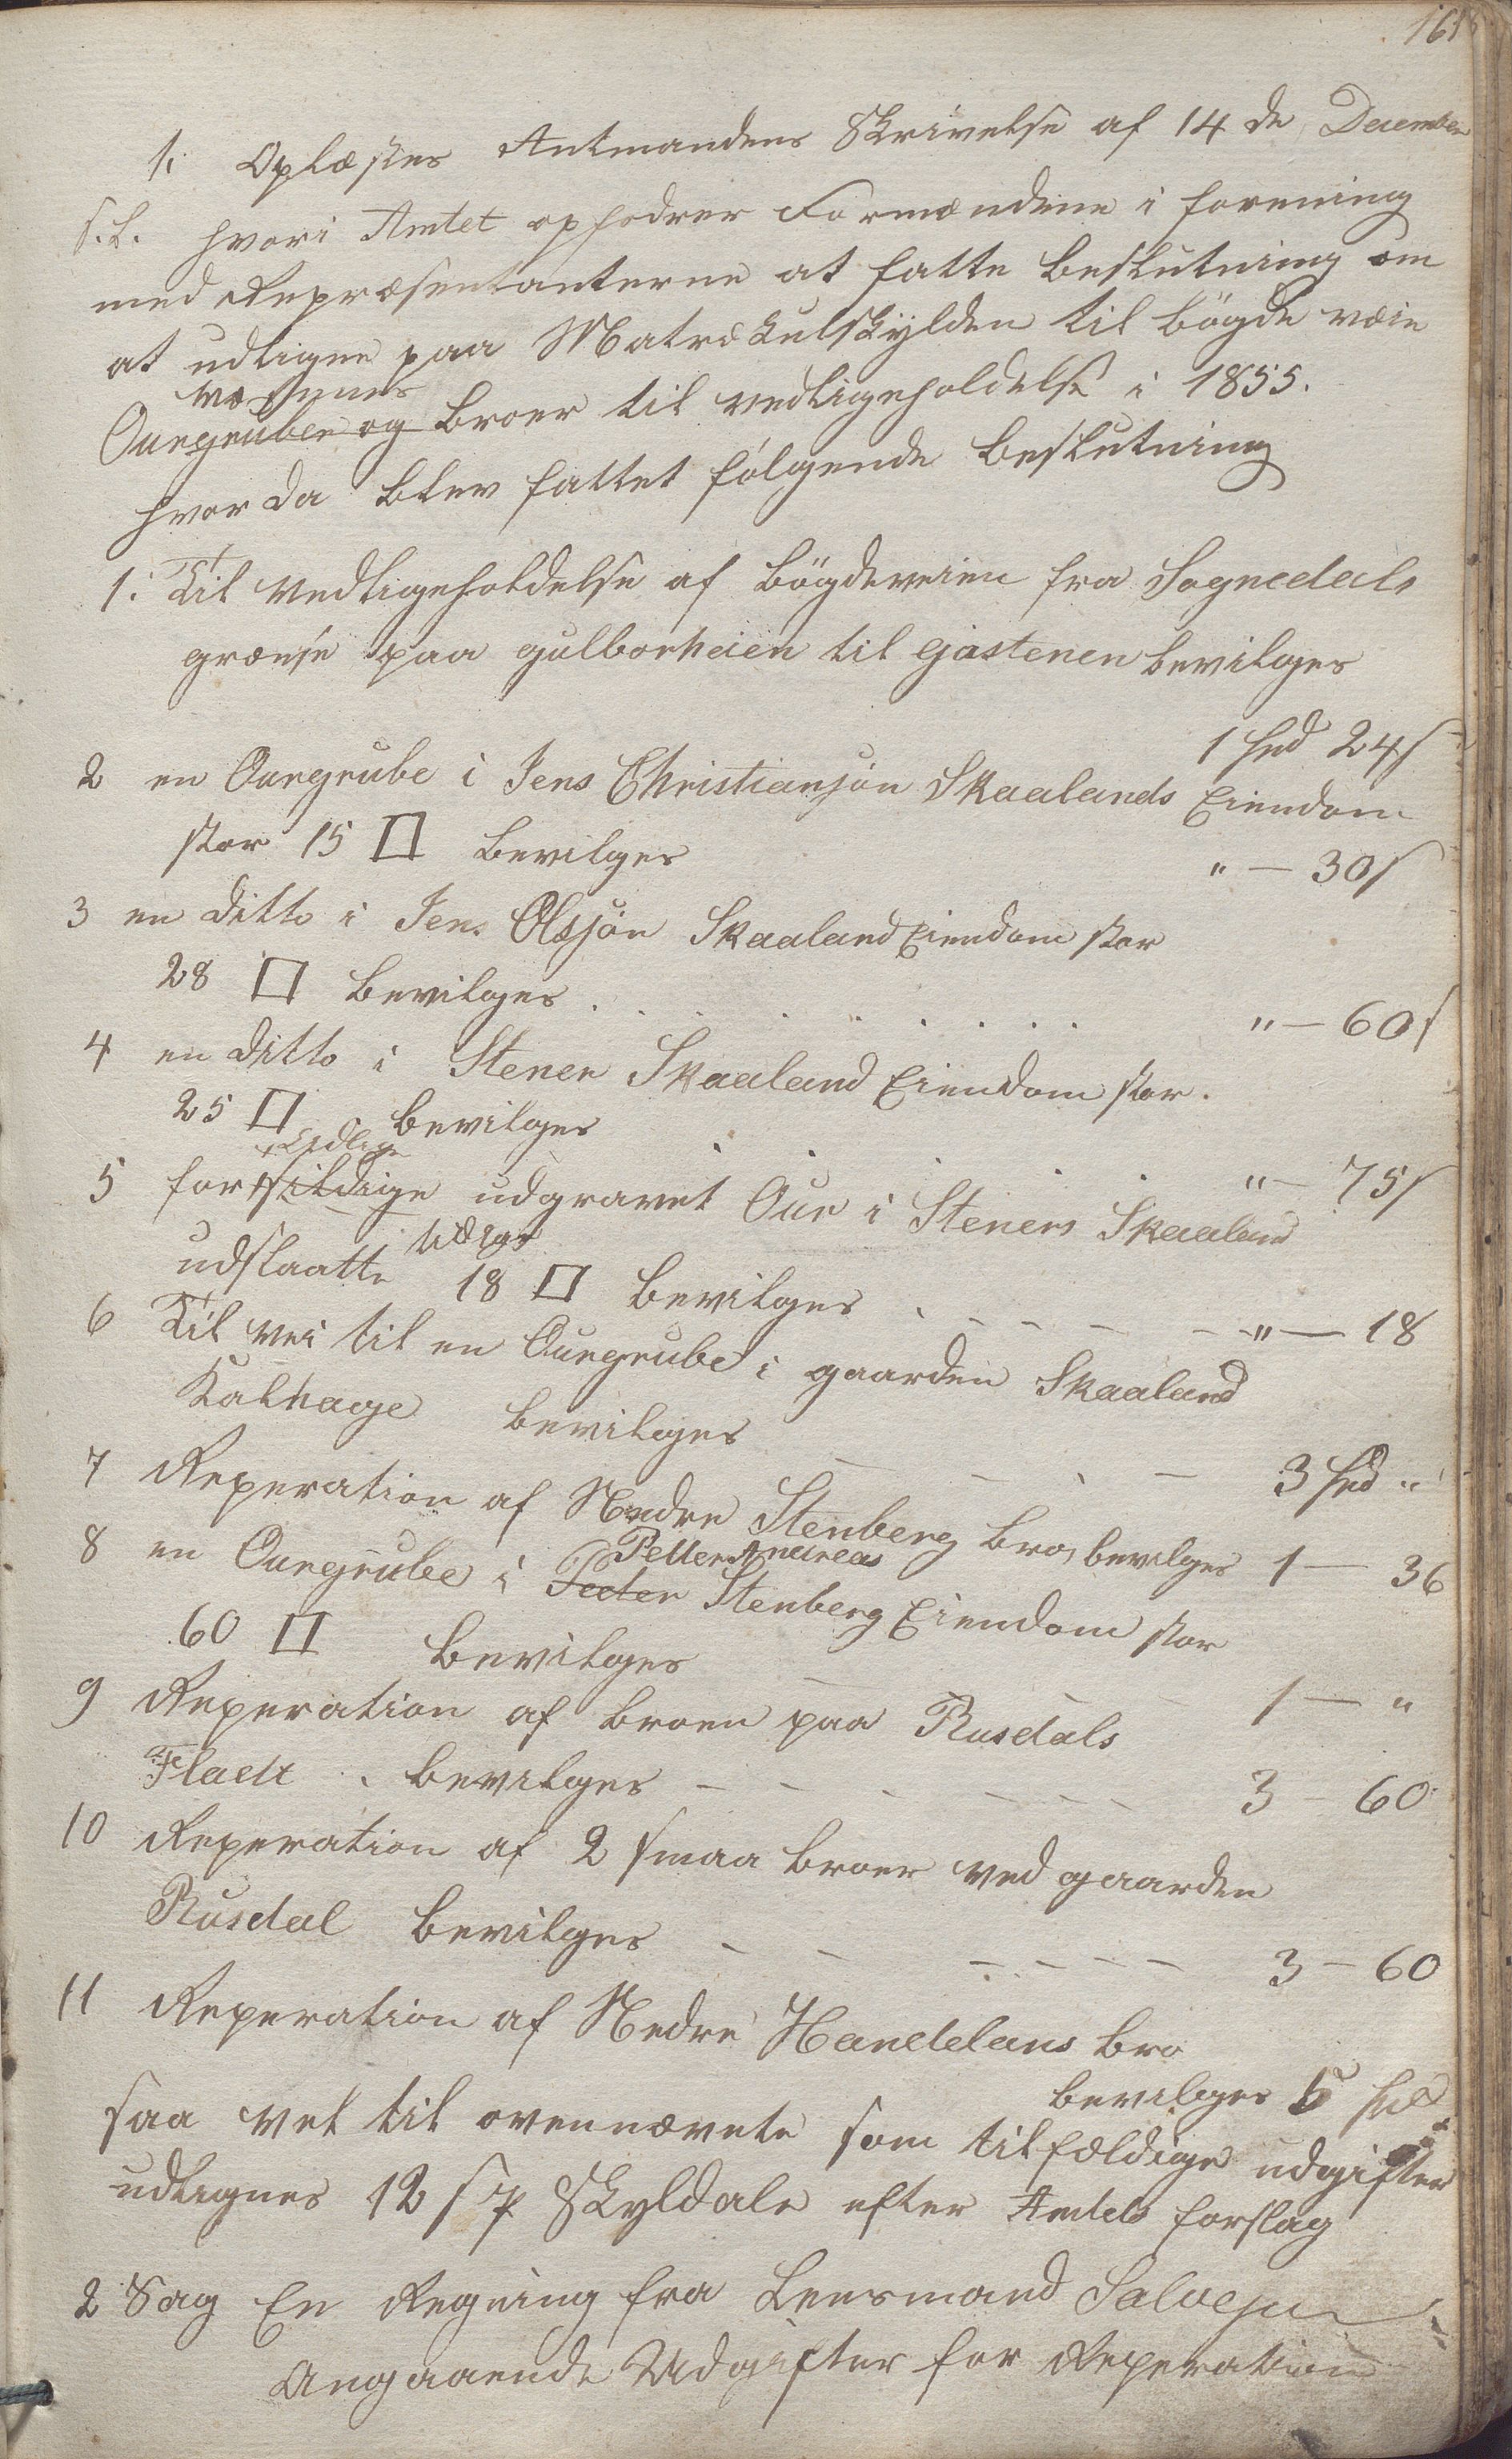 161
1. Oplæstes Amtmandens Skrivelse af 14 de December
s.L. hvori Amtet opfodrer Formændene i forening
med Repræsentanterne at fatte beslutning om
at udligne paa Matrikulskylden til bögde veie
væsenets
Ouregruber og broer til vedligeholdelse i 1855.
hvor da blev fattet følgende beslutning
1. Til vedligeholdelse af bögdeveien fra Sognedals
grænse paa gulborheien til Gjastenen bevilges
1 spd 24 s
2 en Ouregrube i Jens Christiansøn Skaalands Eiendom
stor 15 □ bevilges " — 30 s
3 en ditto i Jens Olssön Skaaland Eiendom stor
28 □ bevilges . . . . . . . . " — 60 s
4 en ditto i Stener Skaaland Eiendom stor.
25 □ bevilges . . . . " — 75 s
5 for udgravet Our i Steners Skaaland
udslaatte 18 □ bevilges . - - - - - " — 18
6 Til vei til en Ouregrube i gaarden Skaaland
Kalhage bevilges — — — 3 spd "
7 Reperation af Nedre Stenberg bro, bevilges 1 — 36
Petter Andreas
8 en Ouregrube i Peeter Stenberg Eiendom stor
60 □ bevilges — — — 1 — "
9 Reperation af broen paa Rusdals
Fladt . bevilges - - - - - - 3 - 60
10 Reperation af 2 smaa broer ved gaarden
Rusdal bevilges - - - - - - 3 - 60
11 Reperation af Nedre Handelans bro
bevilges 5 spd
saa vel til ovennævnte som tilfældige udgifter
udlignes 12 s p Skyldale efter Amtets forslag
2 Sag En Regning fra Lensmand Salvesen
Angaaende Udgifter for Reperation